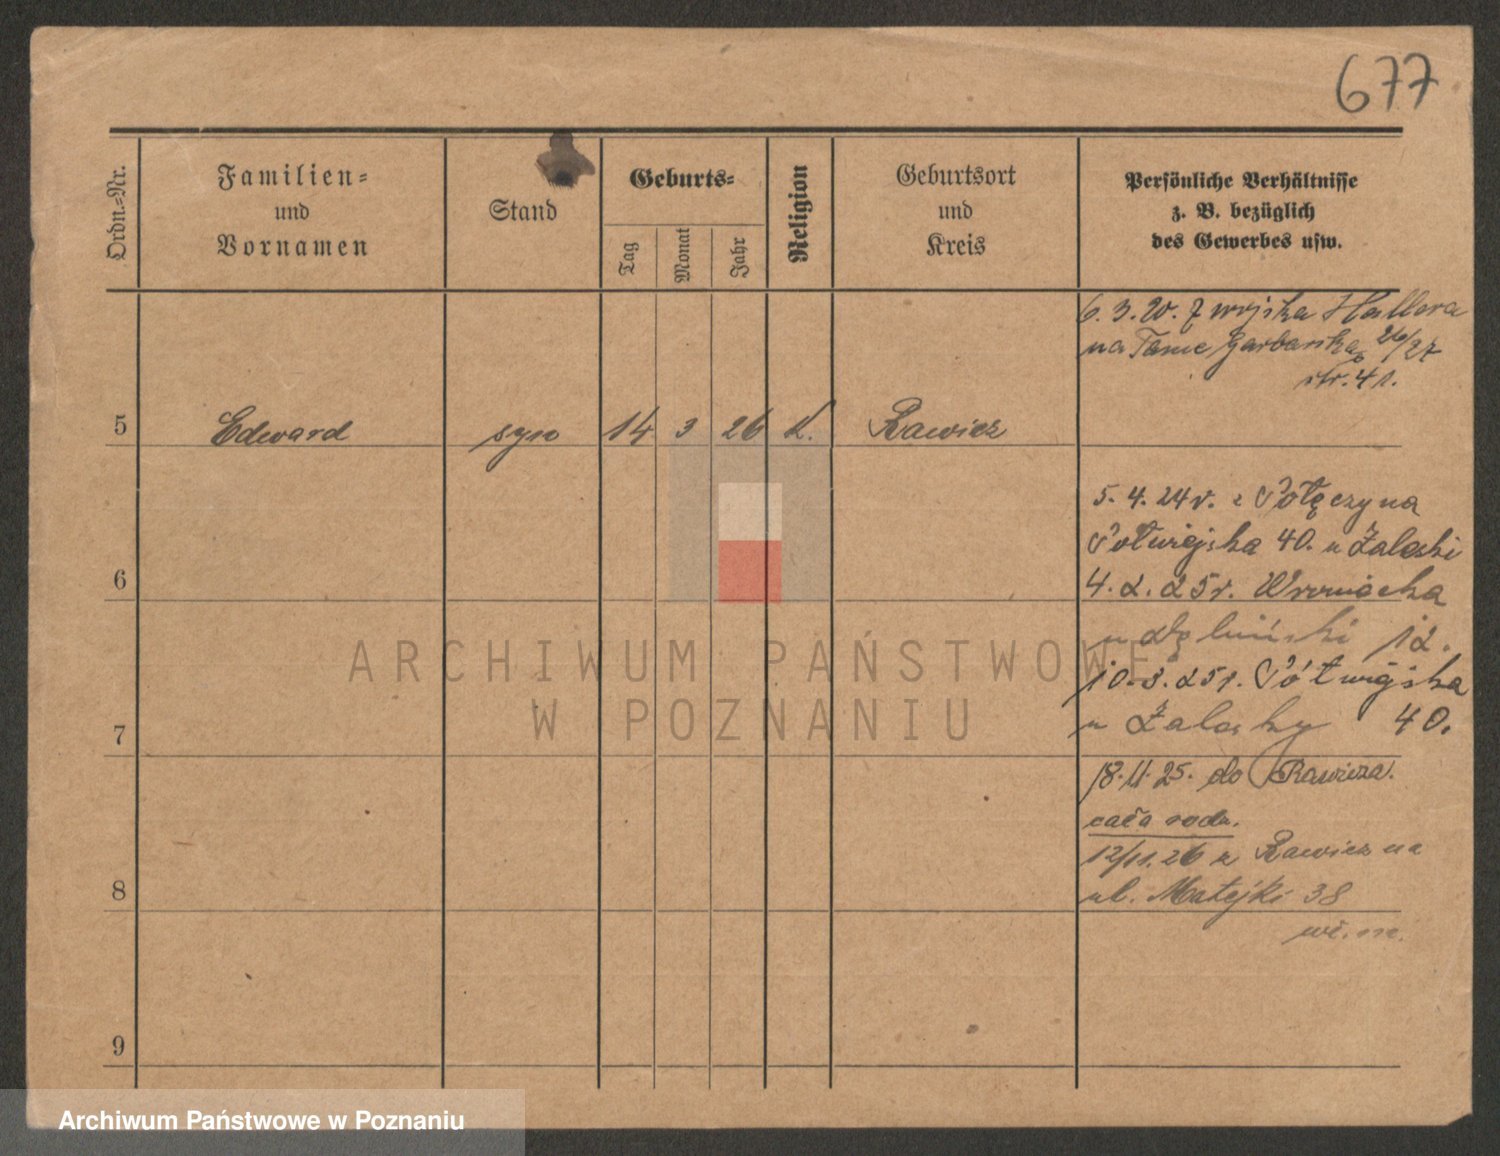 677
Ordn.-Nr.
Familien-
und
Vornamen
Stand
Geburts-
Tag
Monat
Jahr
Religion
Geburtsort
und
Kreis
Persönliche Verhältnisse
z. B. bezüglich
des Gewerbes usw.
6. 3. 20. z wojska Hallera
na Tame Garbarska 26/27
str. 41.
5 Edward syn 14 3 26 k. Rawicz
5. 4. 24 r. z
Półwiejska 40. u Żaleski
6
4. 2. 25 r. Wroniecka
u 12.
10. 3. 25 r. Półwiejska
u 40.
7
18. 11. 25. do Rawicza.
cała rodz.
12/11. 26 z Rawicz na
ul. Matejki 38
8
wł. m.
9
ARCHIWUM PAŃSTWOWE
W POZNANIU
Archiwum Państwowe w Poznaniu